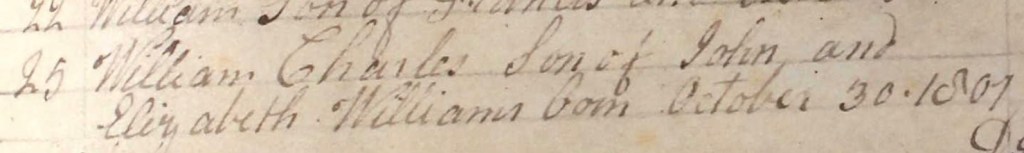 22 William Son of Francis and
25 William Charles Son of John and
Elizabeth Williams born October 30. 1801